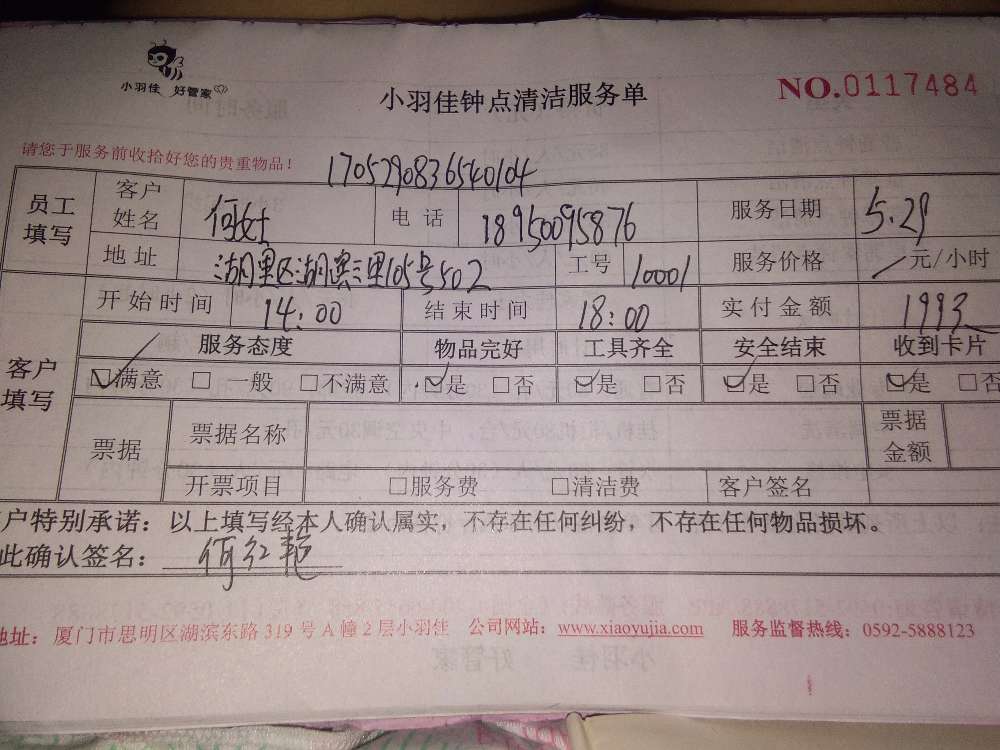 小羽佳 好管家
小羽佳钟点清洁服务单
NO.0117484
请您于服务前收拾好您的贵重物品！
1705290836540104
员工填写 客户姓名 何女士 电话 18950095876 服务日期 5.29
地址 湖里区湖滨三里105号502 工号 10001 服务价格 元/小时
客户填写 开始时间 14:00 结束时间 18:00 实付金额 1993
服务态度 物品完好 工具齐全 安全结束 收到卡片
☑满意 □一般 □不满意 ☑是 □否 ☑是 □否 ☑是 □否 ☑是 □否
票据 票据名称 票据金额
开票项目 □服务费 □清洁费 客户签名
户特别承诺：以上填写经本人确认属实，不存在任何纠纷，不存在任何物品损坏。
此确认签名：何红艳
地址：厦门市思明区湖滨东路 319 号 A 幢 2 层小羽佳 公司网站：www.xiaoyujia.com 服务监督热线：0592-5888123